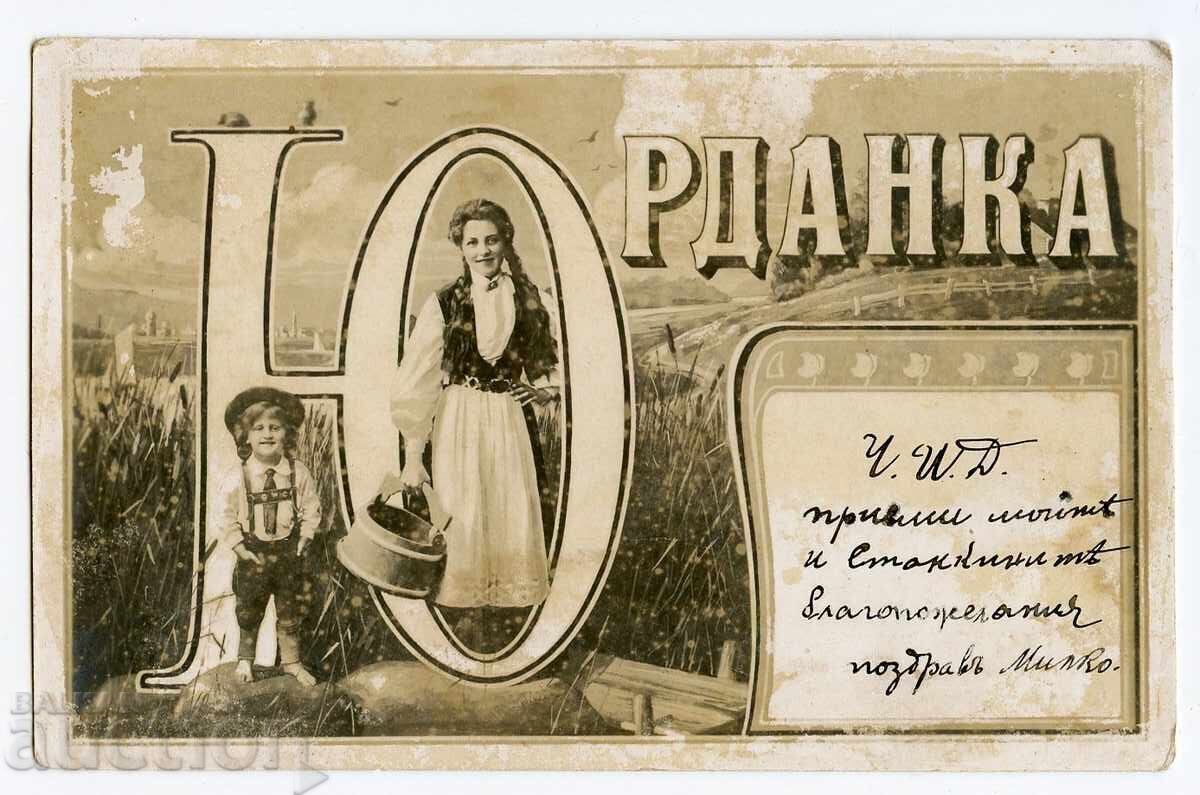 ЮРДАНКА
Ч. И. Д.
приеми моитѣ
и Станкинитѣ
благопожелания
поздравъ Милко.
auction